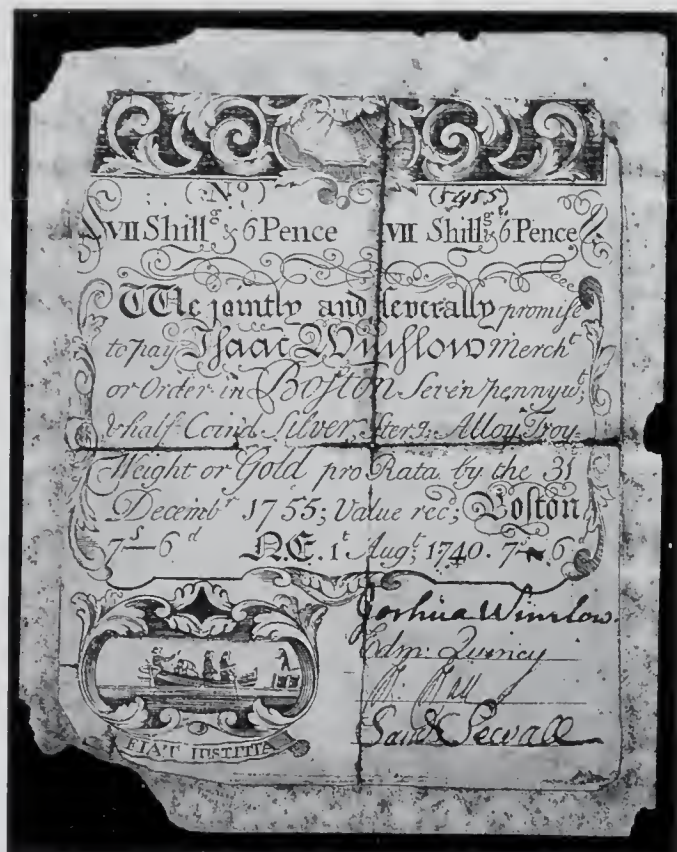 (Nº) (5455)
VII Shillᵍ & 6 Pence VII Shillᵍ & 6 Pence
We jointly and severally promise
to pay Isaac Winslow Merchᵗ
or Order in Boston Seven pennywᵗ
& half Coin'd Silver, Sterg: Alloy, Troy
Weight or Gold pro Rata by the 31
Decembʳ 1755; Value recᵈ; Boston
7ˢ—6ᵈ N.E. 1ᵗ Augᵗ; 1740. 7ˢ 6
Joshua Winslow
Edmᵈ Quincy
Samˡ Sewall
FIAT IUSTITIA